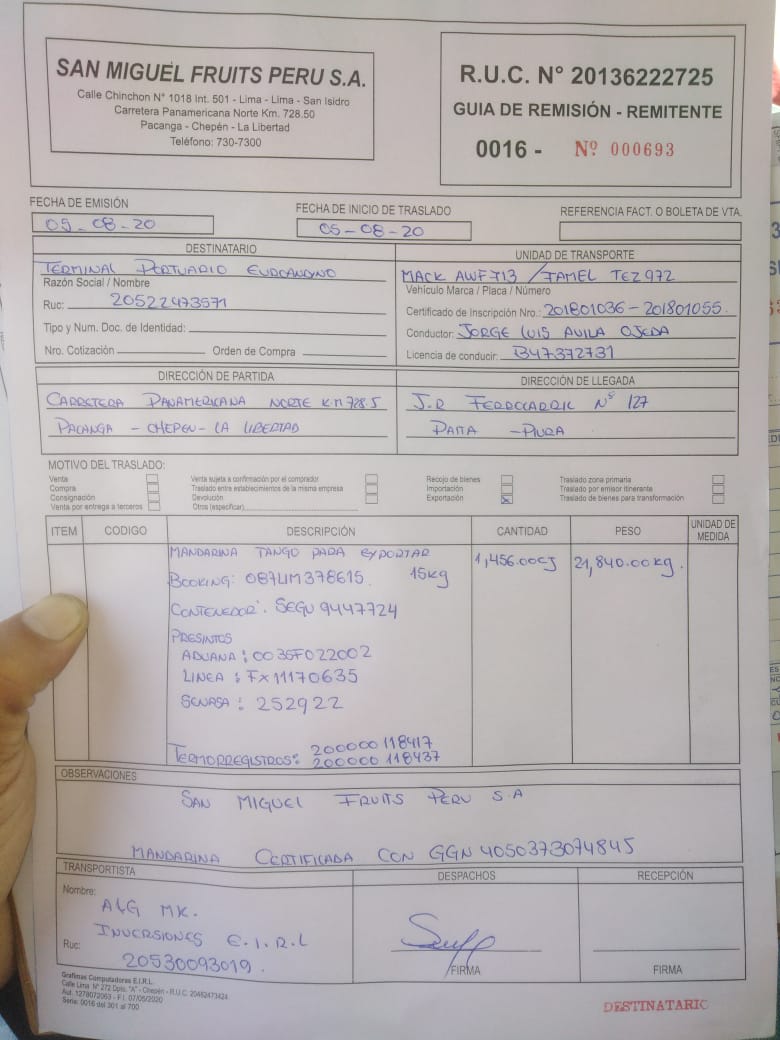 SAN MIGUEL FRUITS PERU S.A.
Calle Chinchon N° 1018 Int. 501 - Lima - Lima - San Isidro
Carretera Panamericana Norte Km. 728.50
Pacanga - Chepén - La Libertad
Teléfono: 730-7300
R.U.C. N° 20136222725
GUIA DE REMISIÓN - REMITENTE
0016 - Nº 000693
FECHA DE EMISIÓN
05-08-20
FECHA DE INICIO DE TRASLADO
05-08-20
REFERENCIA FACT. O BOLETA DE VTA.
DESTINATARIO
TERMINAL PORTUARIO EUROANDINO
Razón Social / Nombre
Ruc: 20522473571
Tipo y Num. Doc. de Identidad:
Nro. Cotización Orden de Compra
UNIDAD DE TRANSPORTE
MACK AWF713 / FAMEL TEZ972
Vehículo Marca / Placa / Número
Certificado de Inscripción Nro.: 201801036 - 201801055
Conductor: JORGE LUIS AVILA OJEDA
Licencia de conducir: B47372731
DIRECCIÓN DE PARTIDA
CARRETERA PANAMERICANA NORTE KM 728.5
PACANGA - CHEPEN - LA LIBERTAD
DIRECCIÓN DE LLEGADA
J.R FERROCARRIL Nº 127
PAITA - PIURA
MOTIVO DEL TRASLADO:
Venta
Compra
Consignación
Venta por entrega a terceros
Venta sujeta a confirmación por el comprador
Traslado entre establecimientos de la misma empresa
Devolución
Otros (especificar)
Recojo de bienes
Importación
Exportación X
Traslado zona primaria
Traslado por emisor itinerante
Traslado de bienes para transformación
ITEM CODIGO DESCRIPCIÓN CANTIDAD PESO UNIDAD DE MEDIDA
MANDARINA TANGO PARA EXPORTAR 1,456.00CJ 21,840.00kg.
BOOKING: 087LIM378615. 15kg
CONTENEDOR: SEGU 9447724
PRESINTOS
ADUANA: 0035F022002
LINEA: FX11170635
SENASA: 252922
TERMORREGISTROS: 200000118417
200000118437
OBSERVACIONES
SAN MIGUEL FRUITS PERU S.A
MANDARINA CERTIFICADA CON GGN 4050373074845
TRANSPORTISTA
Nombre: A&G MK.
INVERSIONES E.I.R.L
Ruc: 20530093019.
DESPACHOS
FIRMA
RECEPCIÓN
FIRMA
Grafimas Computadoras E.I.R.L.
Calle Lima N° 272 Dpto. "A" - Chepén - R.U.C. 20482473424
Aut. 1278072063 - F.I. 07/05/2020
Serie: 0016 del 301 al 700
DESTINATARIO